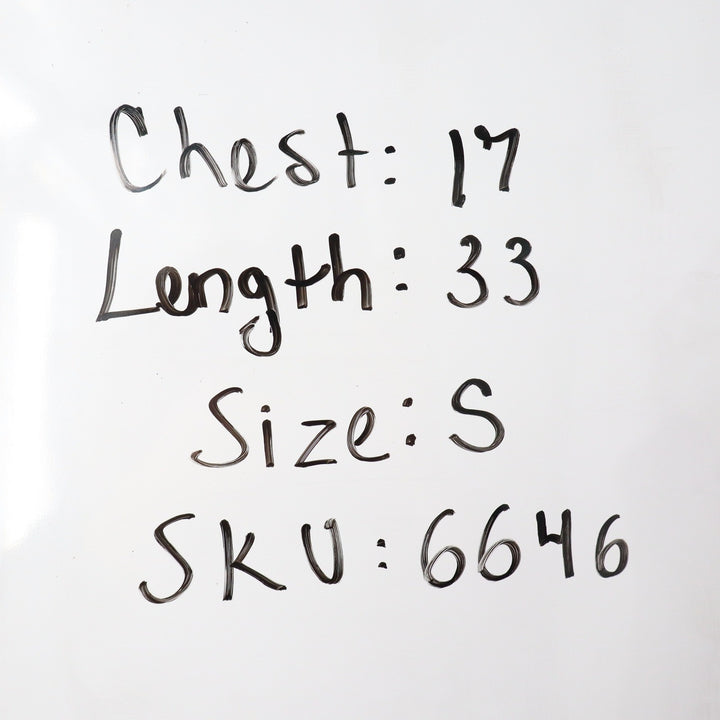 Chest: 17
Length: 33
Size: S
SKU: 6646